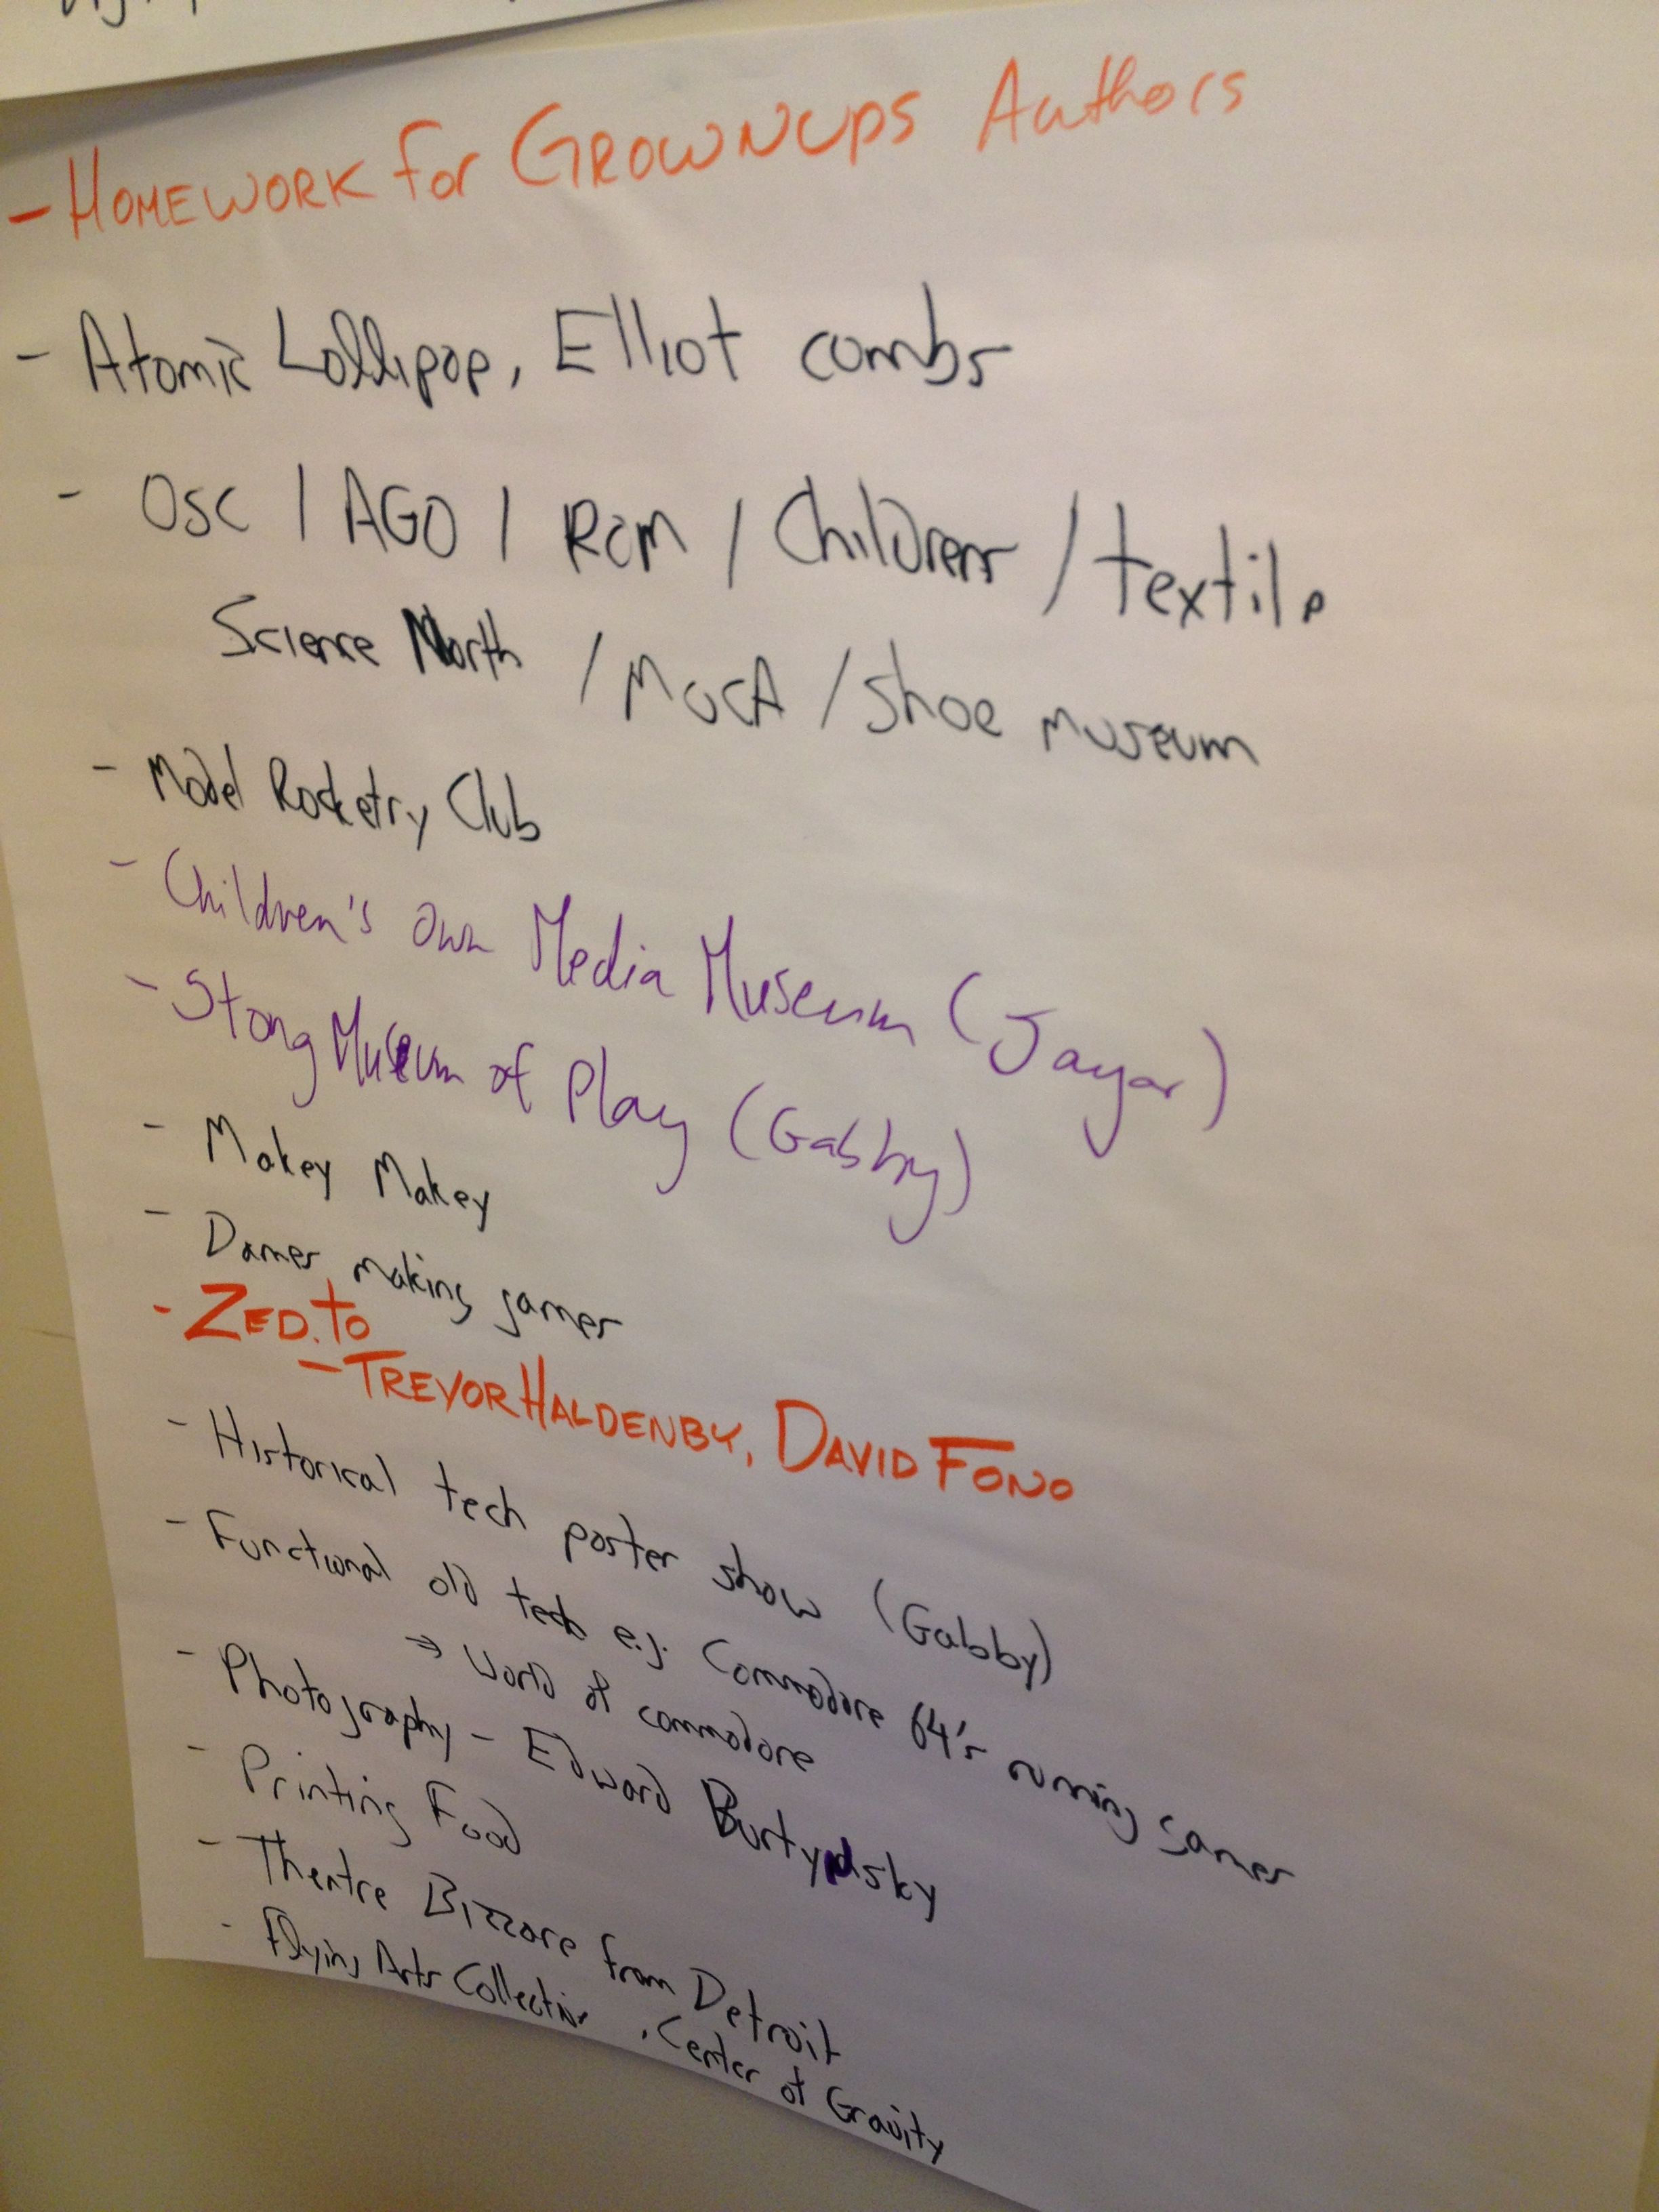 - HOMEWORK for GROWNUPS Authors
- Atomic Lollipop, Elliot combs
- OSC / AGO / ROM / Childrens / textile
Science North / MOCA / Shoe museum
- Model Rocketry Club
- Children's Own Media Museum (Jayar)
- Stong Museum of Play (Gabby)
- Makey Makey
- Dames making games
- ZED.TO
- TREVOR HALDENBY, DAVID FONO
- Historical tech poster show (Gabby)
- Functional old tech e.g. Commodore 64's running games
→ World of commodore
- Photography - Edward Burtynsky
- Printing Food
- Theatre Bizzare from Detroit
- Flying Arts Collective, Center of Gravity